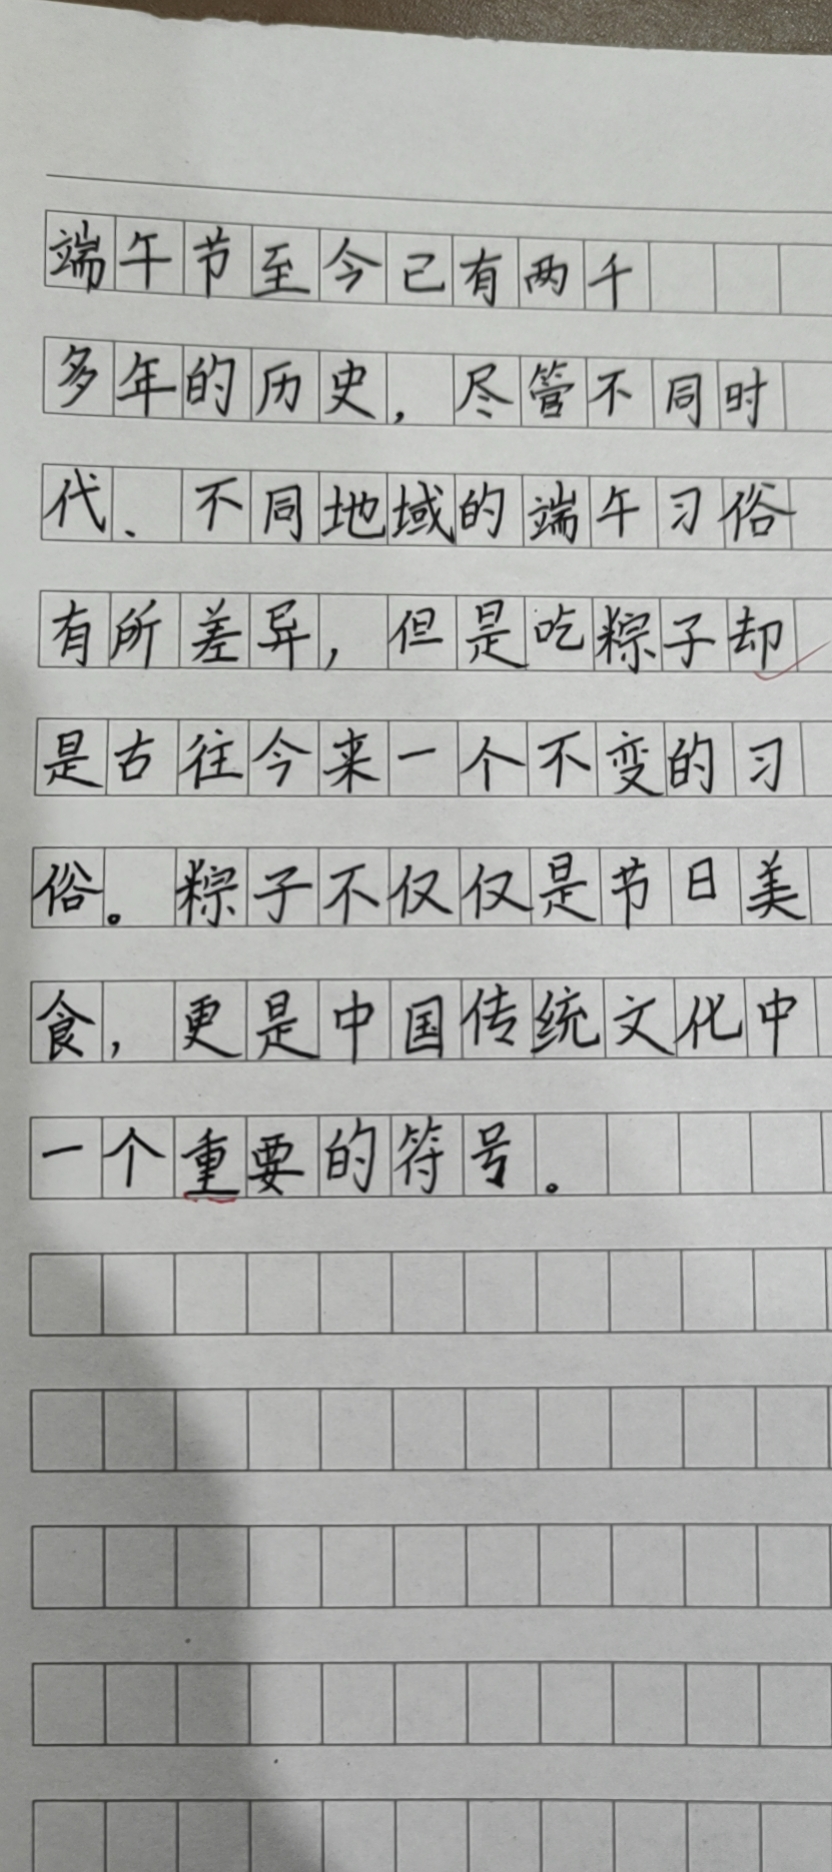 端午节至今已有两千
多年的历史，尽管不同时
代、不同地域的端午习俗
有所差异，但是吃粽子却
是古往今来一个不变的习
俗。粽子不仅仅是节日美
食，更是中国传统文化中
一个重要的符号。